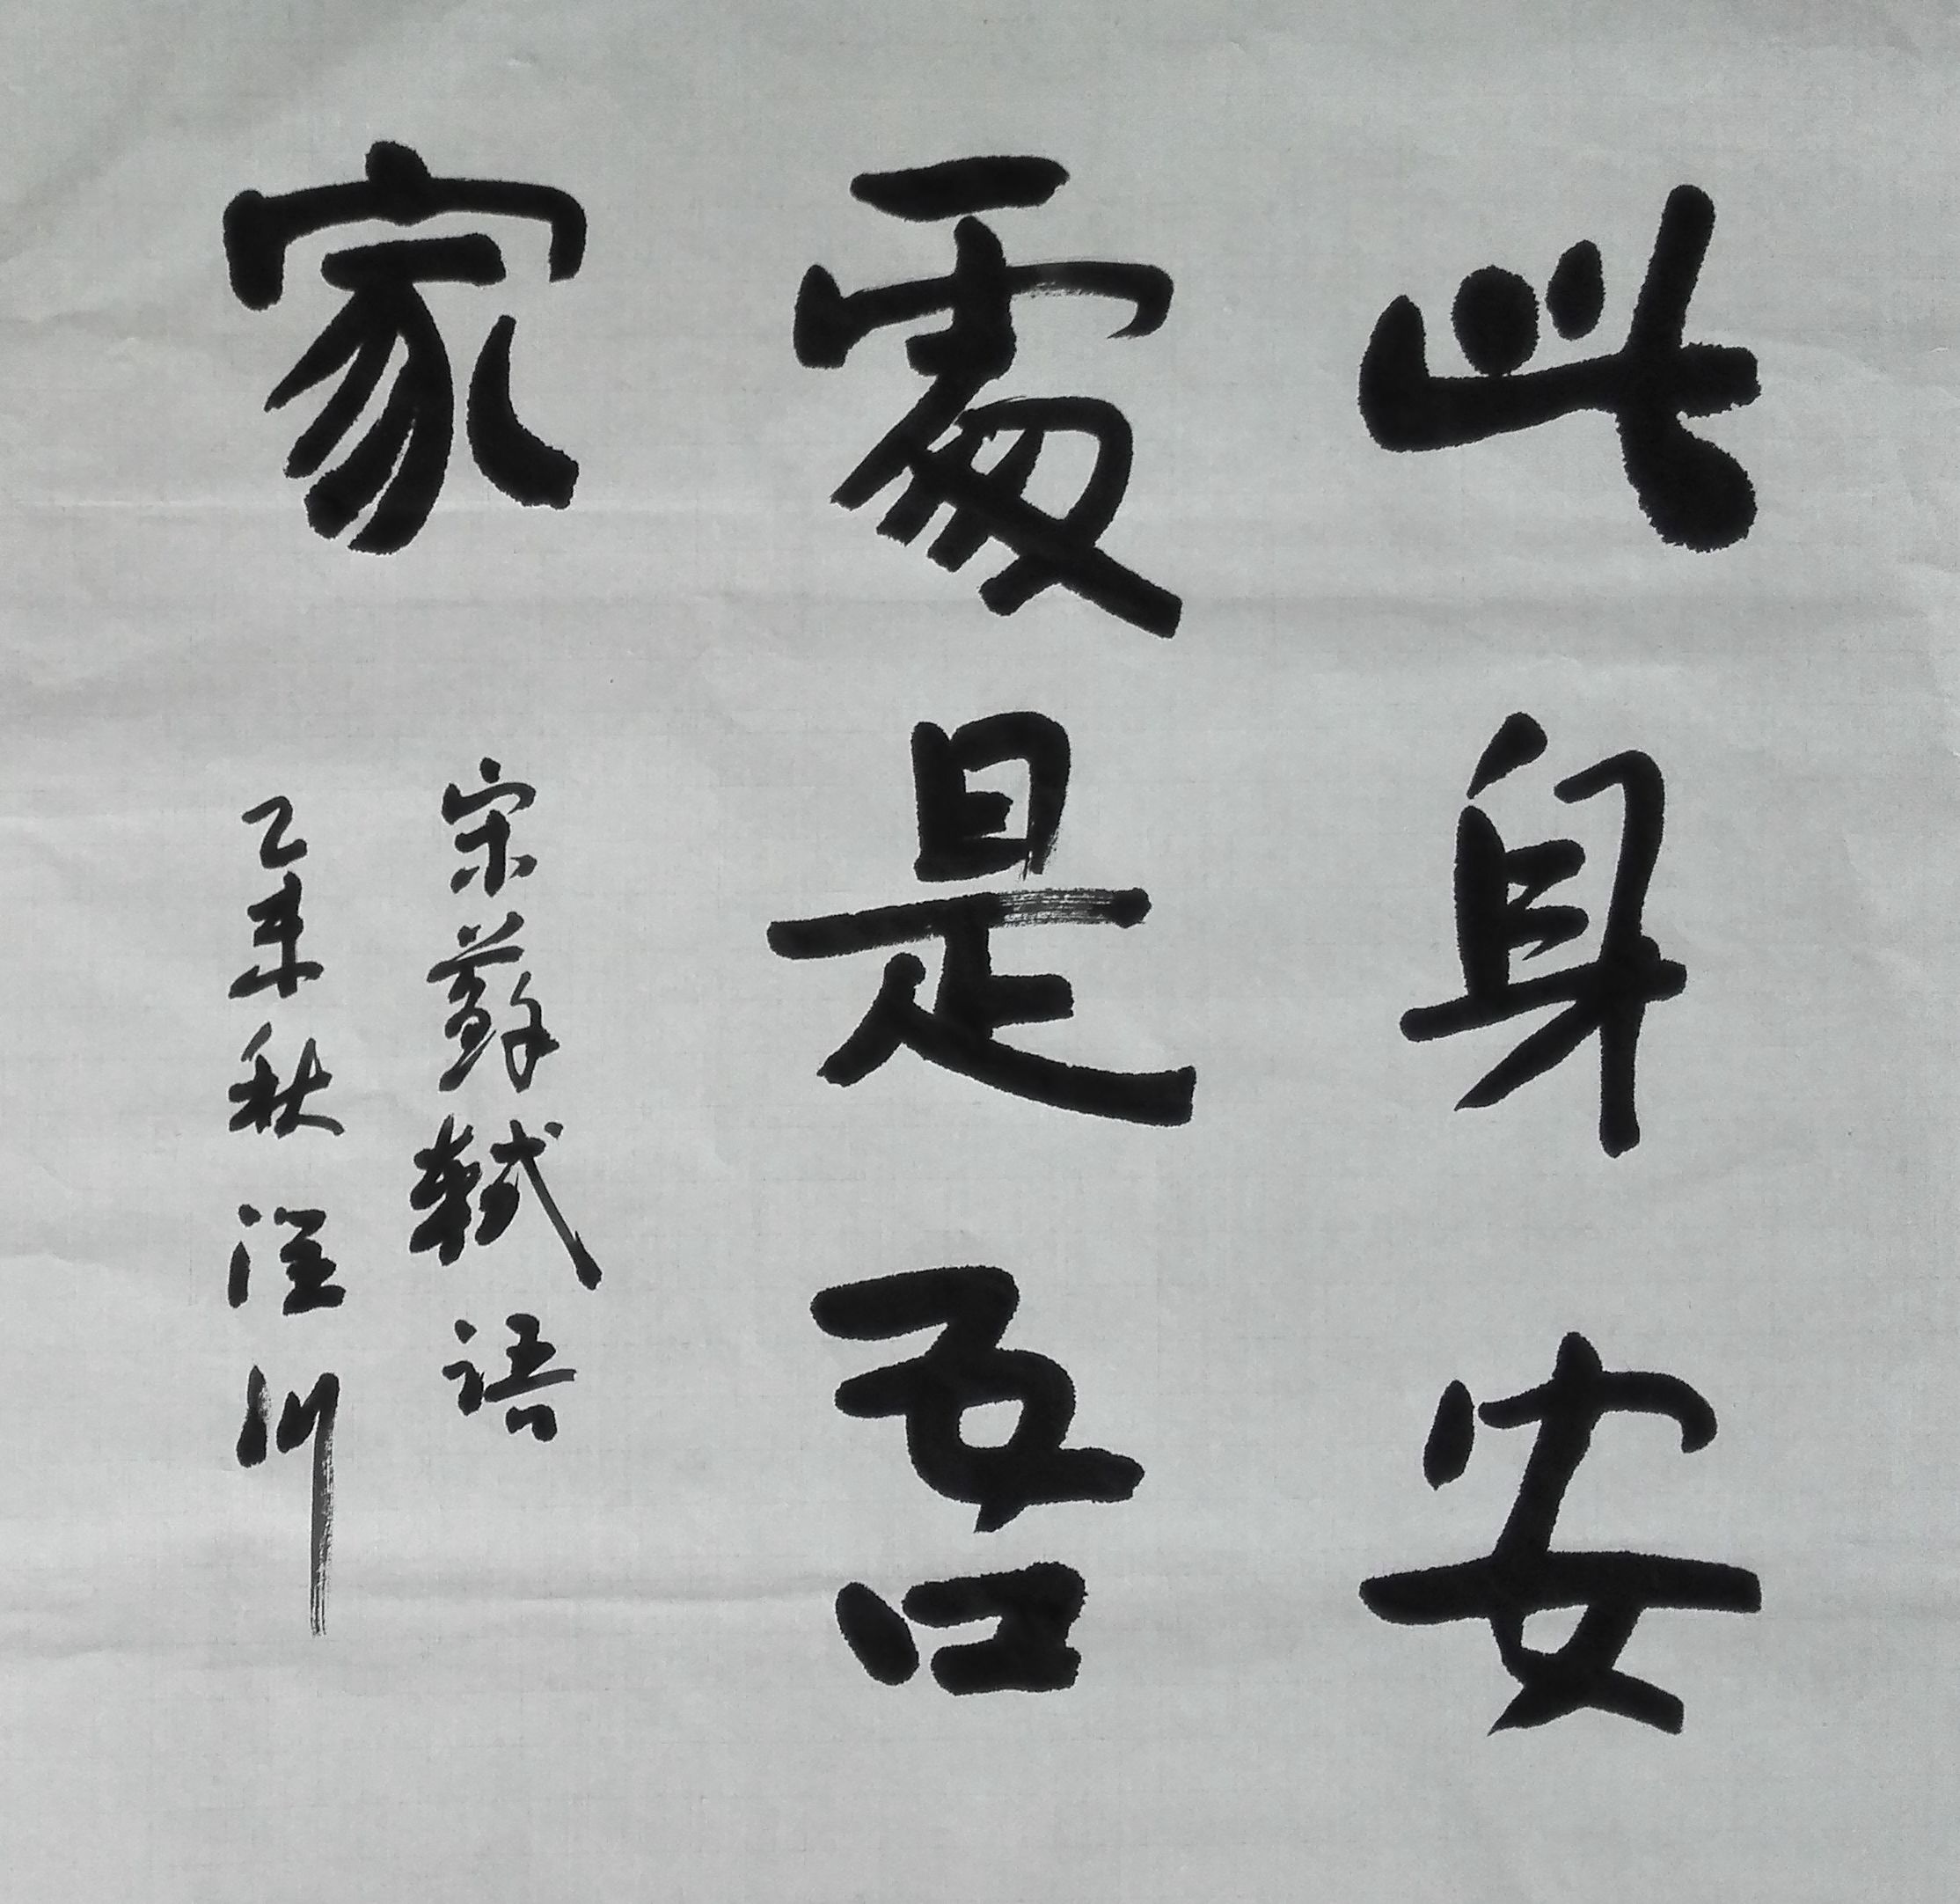 此身安
處是吾
家
宋蘇軾語
乙未秋 川